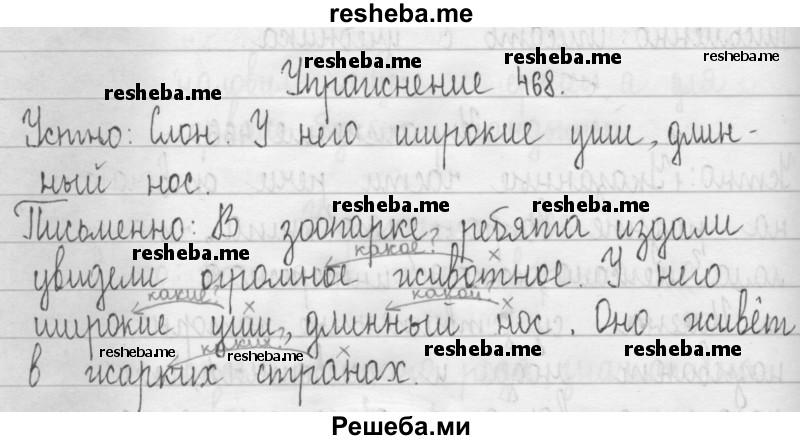 resheba.me
resheba.me
resheba.me
resheba.me
Упражнение 468.
resheba.me
Устно: Слон. У него широкие уши, длин-
ный нос.
resheba.me resheba.me
Письменно: В зоопарке ребята издали
resheba.me
какое? х
увидели огромное животное. У него
какие? х какой? х
широкие уши, длинный нос. Оно живёт
resheba.me resheba.me resheba.me resheba.me
каких? х
в жарких странах.
Решеба.ми